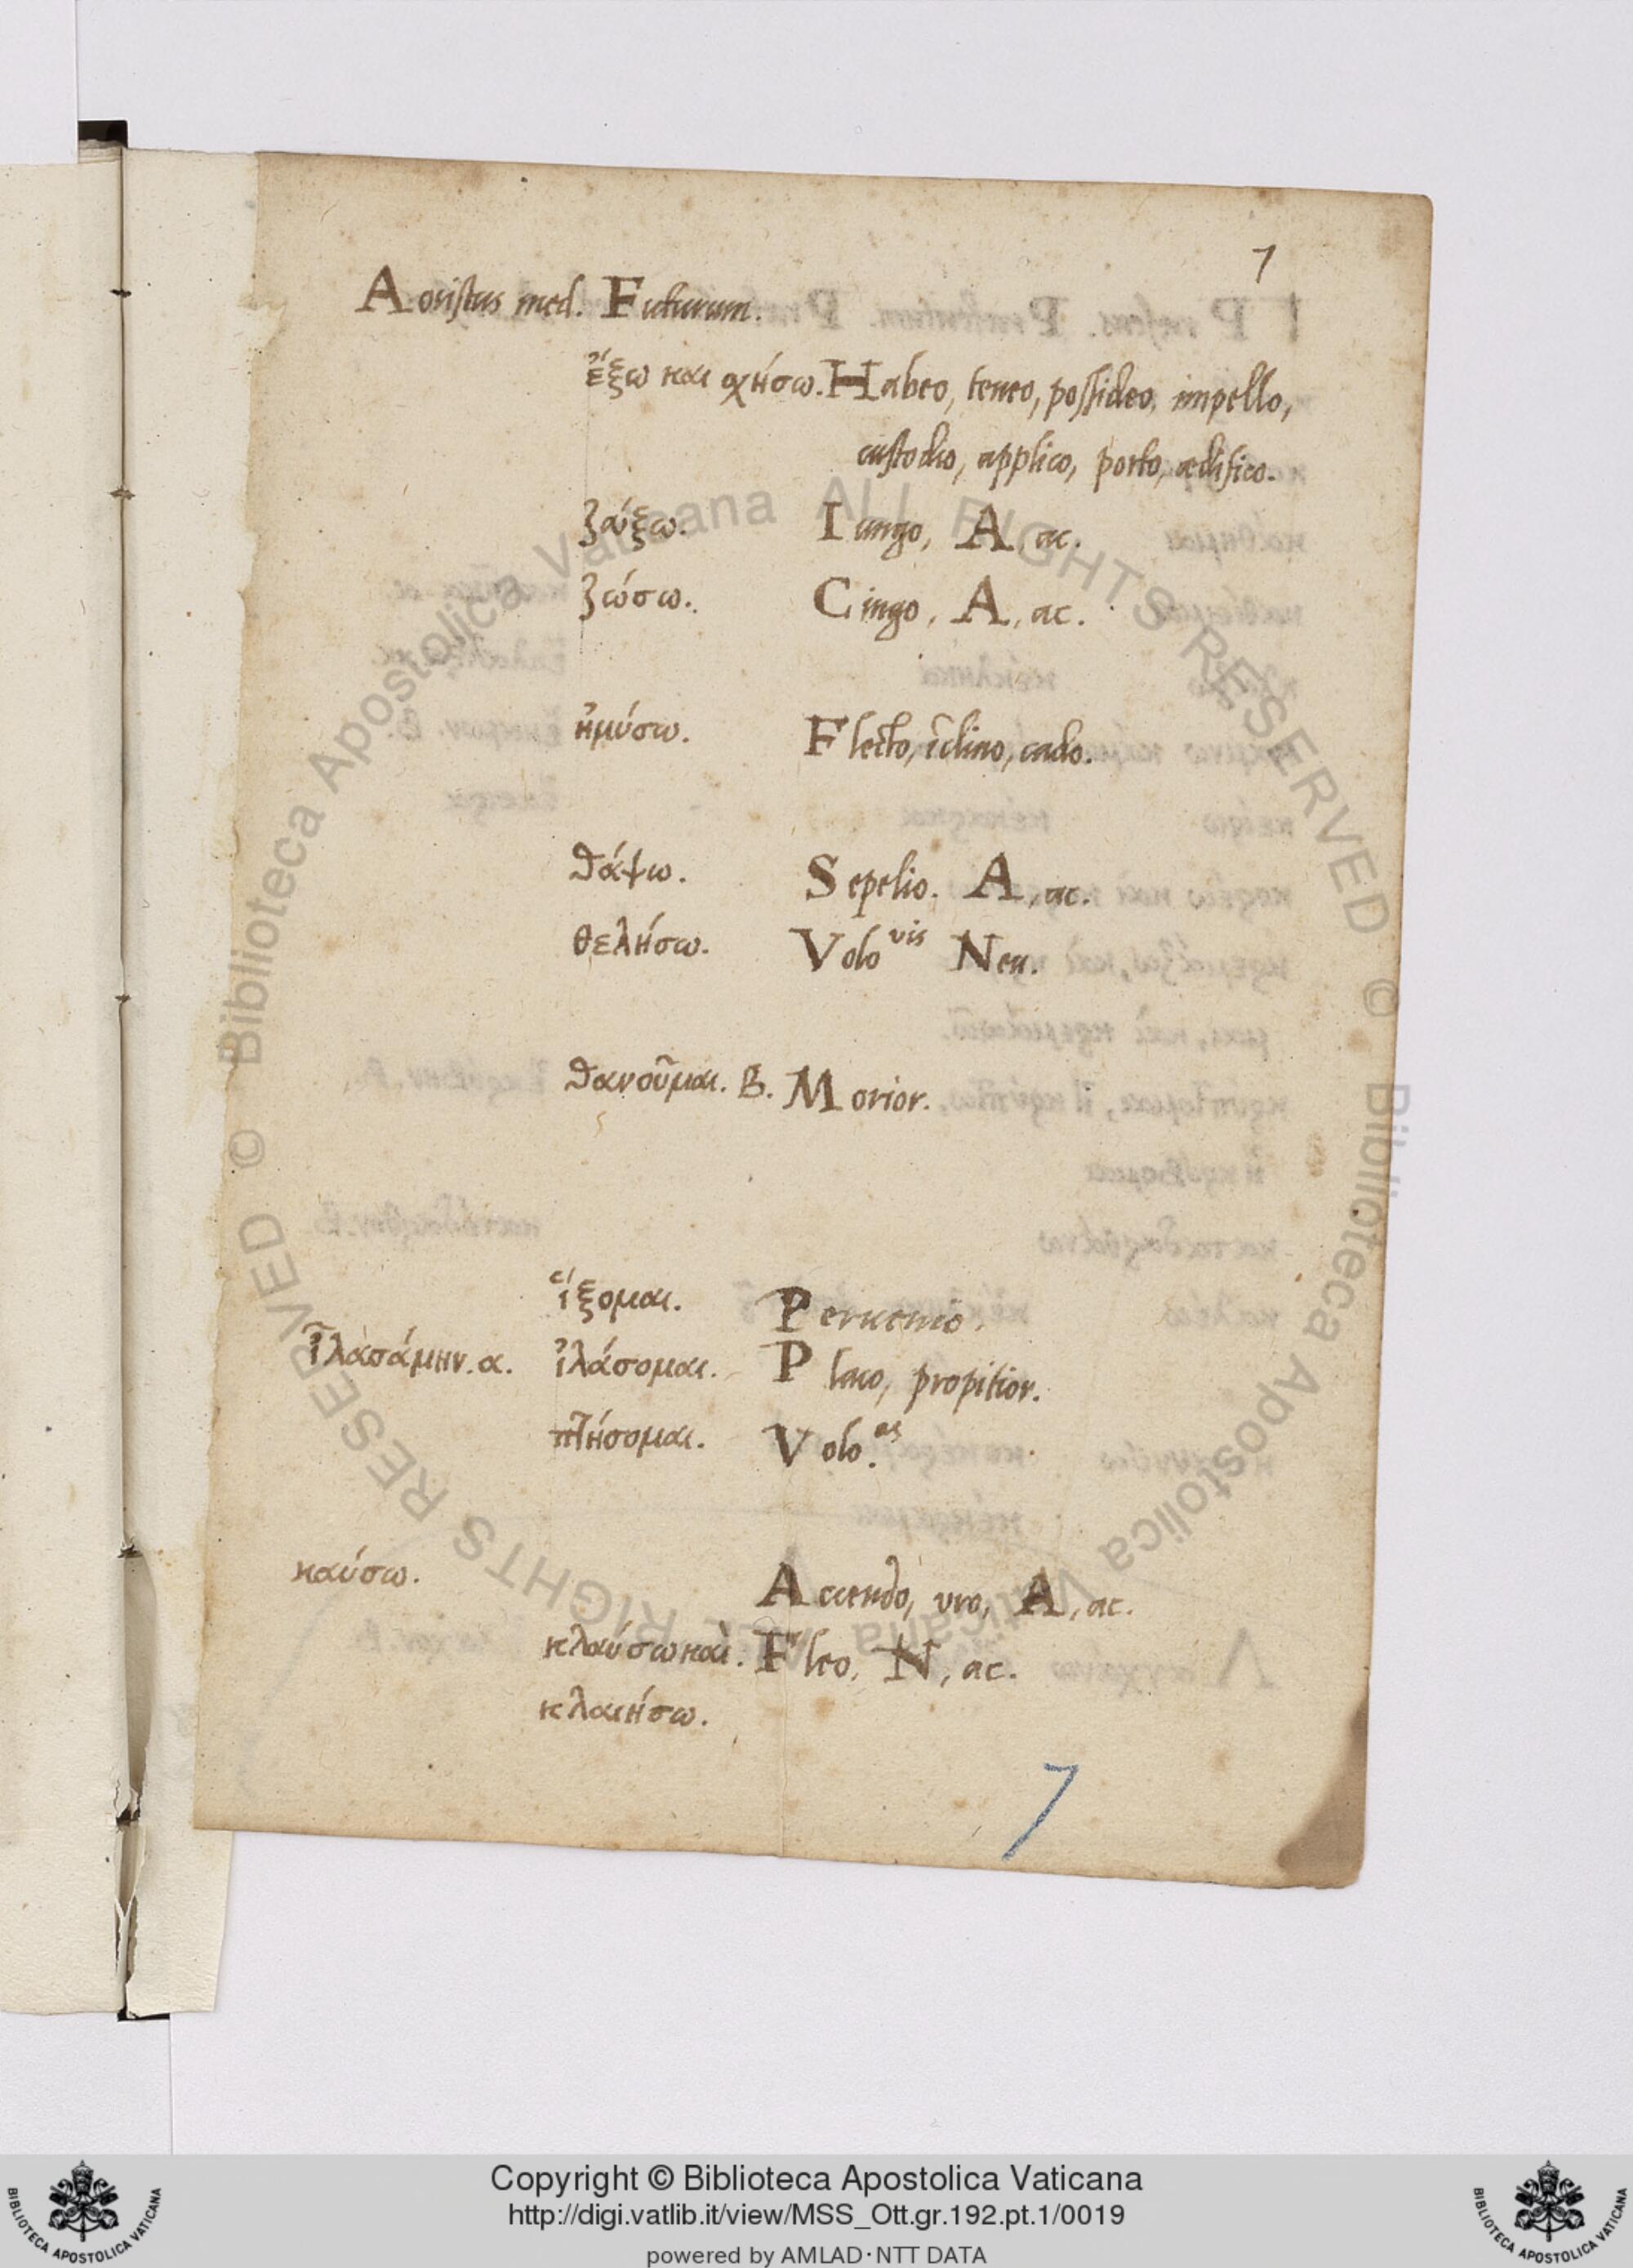 7
Aoristus med. Futurum.
ἕξω και σχήσω. Habeo, teneo, possideo, impello,
custodio, applico, porto, ædifico.
ζεύξω. Iungo, A, ac.
ζώσω. Cingo, A, ac.
ἠμύσω. Flecto, īclino, cado.
θάψω. Sepelio. A, ac.
θελήσω. Volo vis Neu.
θανοῦμαι. B. Morior.
ἵξομαι. Peruenio.
ἱλασάμην. α. ἱλάσομαι. Placo, propitior.
πτήσομαι. Volo. as
καύσω. Accendo, uro, A, ac.
κλαύσω καὶ. Fleo, N, ac.
κλαιήσω.
7
Copyright © Biblioteca Apostolica Vaticana
http://digi.vatlib.it/view/MSS_Ott.gr.192.pt.1/0019
powered by AMLAD·NTT DATA
BIBLIOTECA APOSTOLICA VATICANA
BIBLIOTECA APOSTOLICA VATICANA
© Biblioteca Apostolica Vaticana ALL RIGHTS RESERVED © Biblioteca Apostolica Vaticana ALL RIGHTS RESERVED